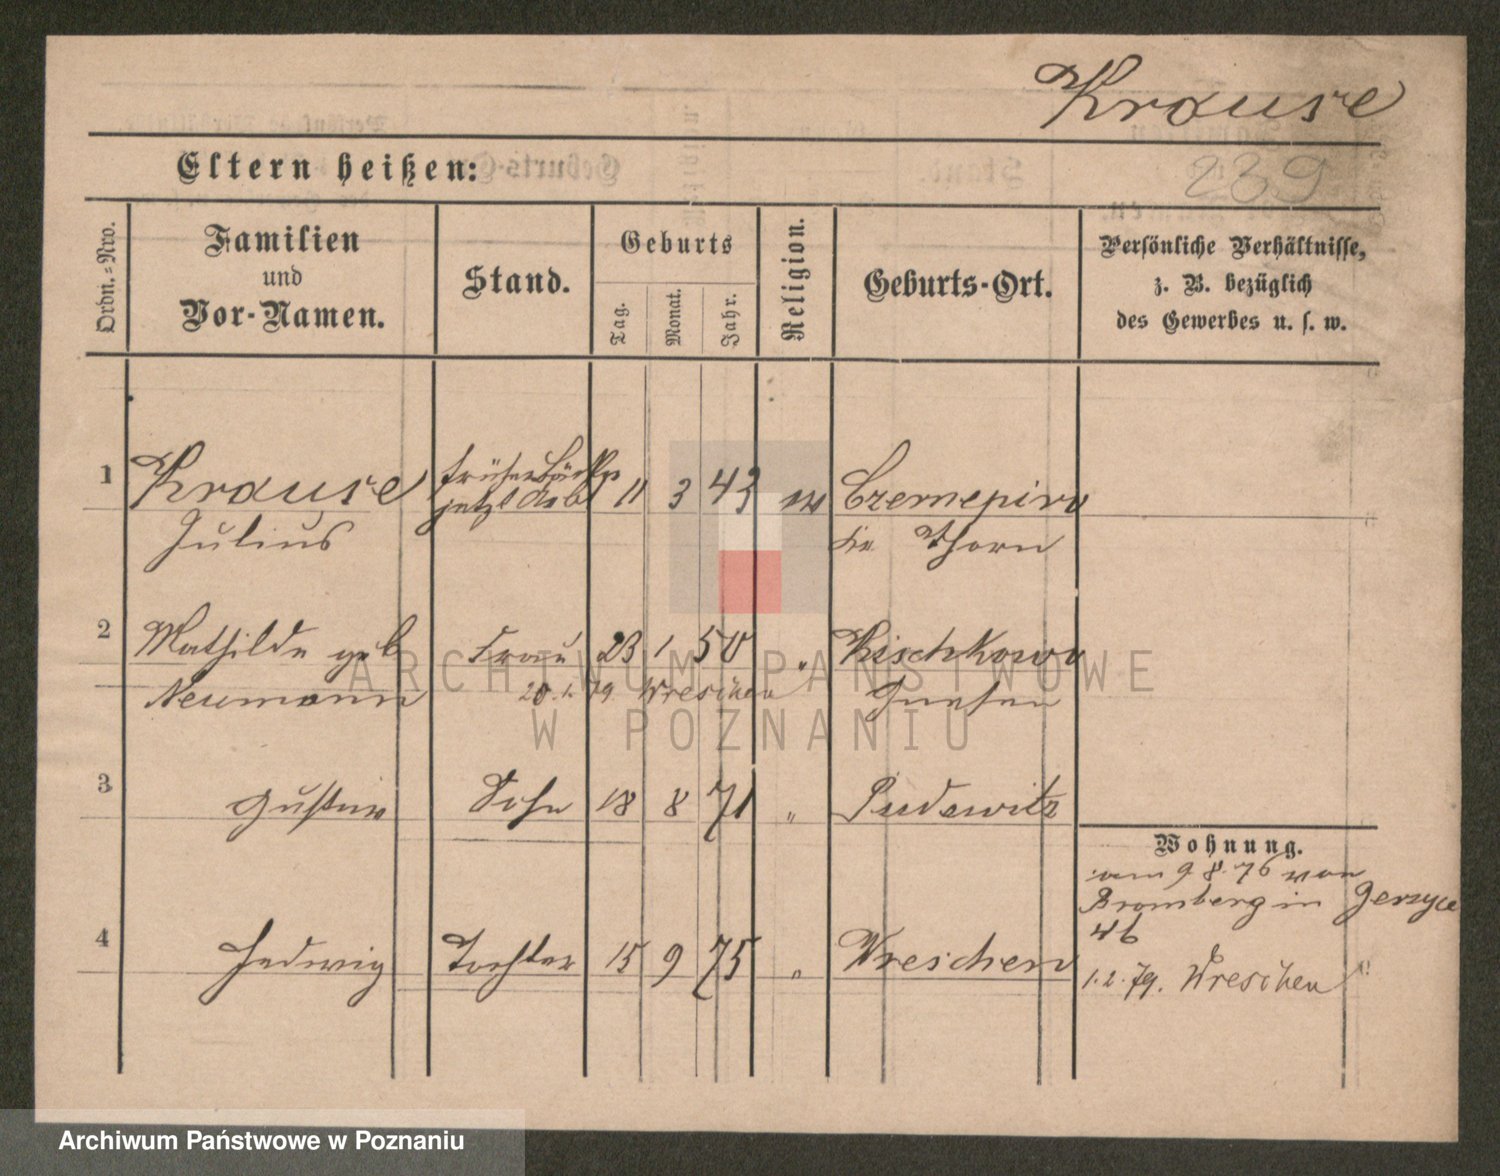 Krause
239
Eltern heißen:
Ordn.=Nro.
Familien
und
Vor-Namen.
Stand.
Geburts
Tag.
Monat.
Jahr.
Religion.
Geburts-Ort.
Persönliche Verhältnisse,
z. B. bezüglich
des Gewerbes u. s. w.
1 Krause früher 11 3 43 Czernepirv
Julius jetzt Arb Thorn
2 Mathilde geb Frau 23 1 50 " Kischkowo
Neumann 20.1.79 Wreschen Gnesen
3 Gustav Sohn 18 8 71 " Pudewitz
Wohnung.
am 9 8. 76 von
Bromberg in Gerzyce
46
4 Hedwig Tochter 15 9 75 " Wreschen
1.2.79. Wreschen
ARCHIWUM PAŃSTWOWE
W POZNANIU
Archiwum Państwowe w Poznaniu